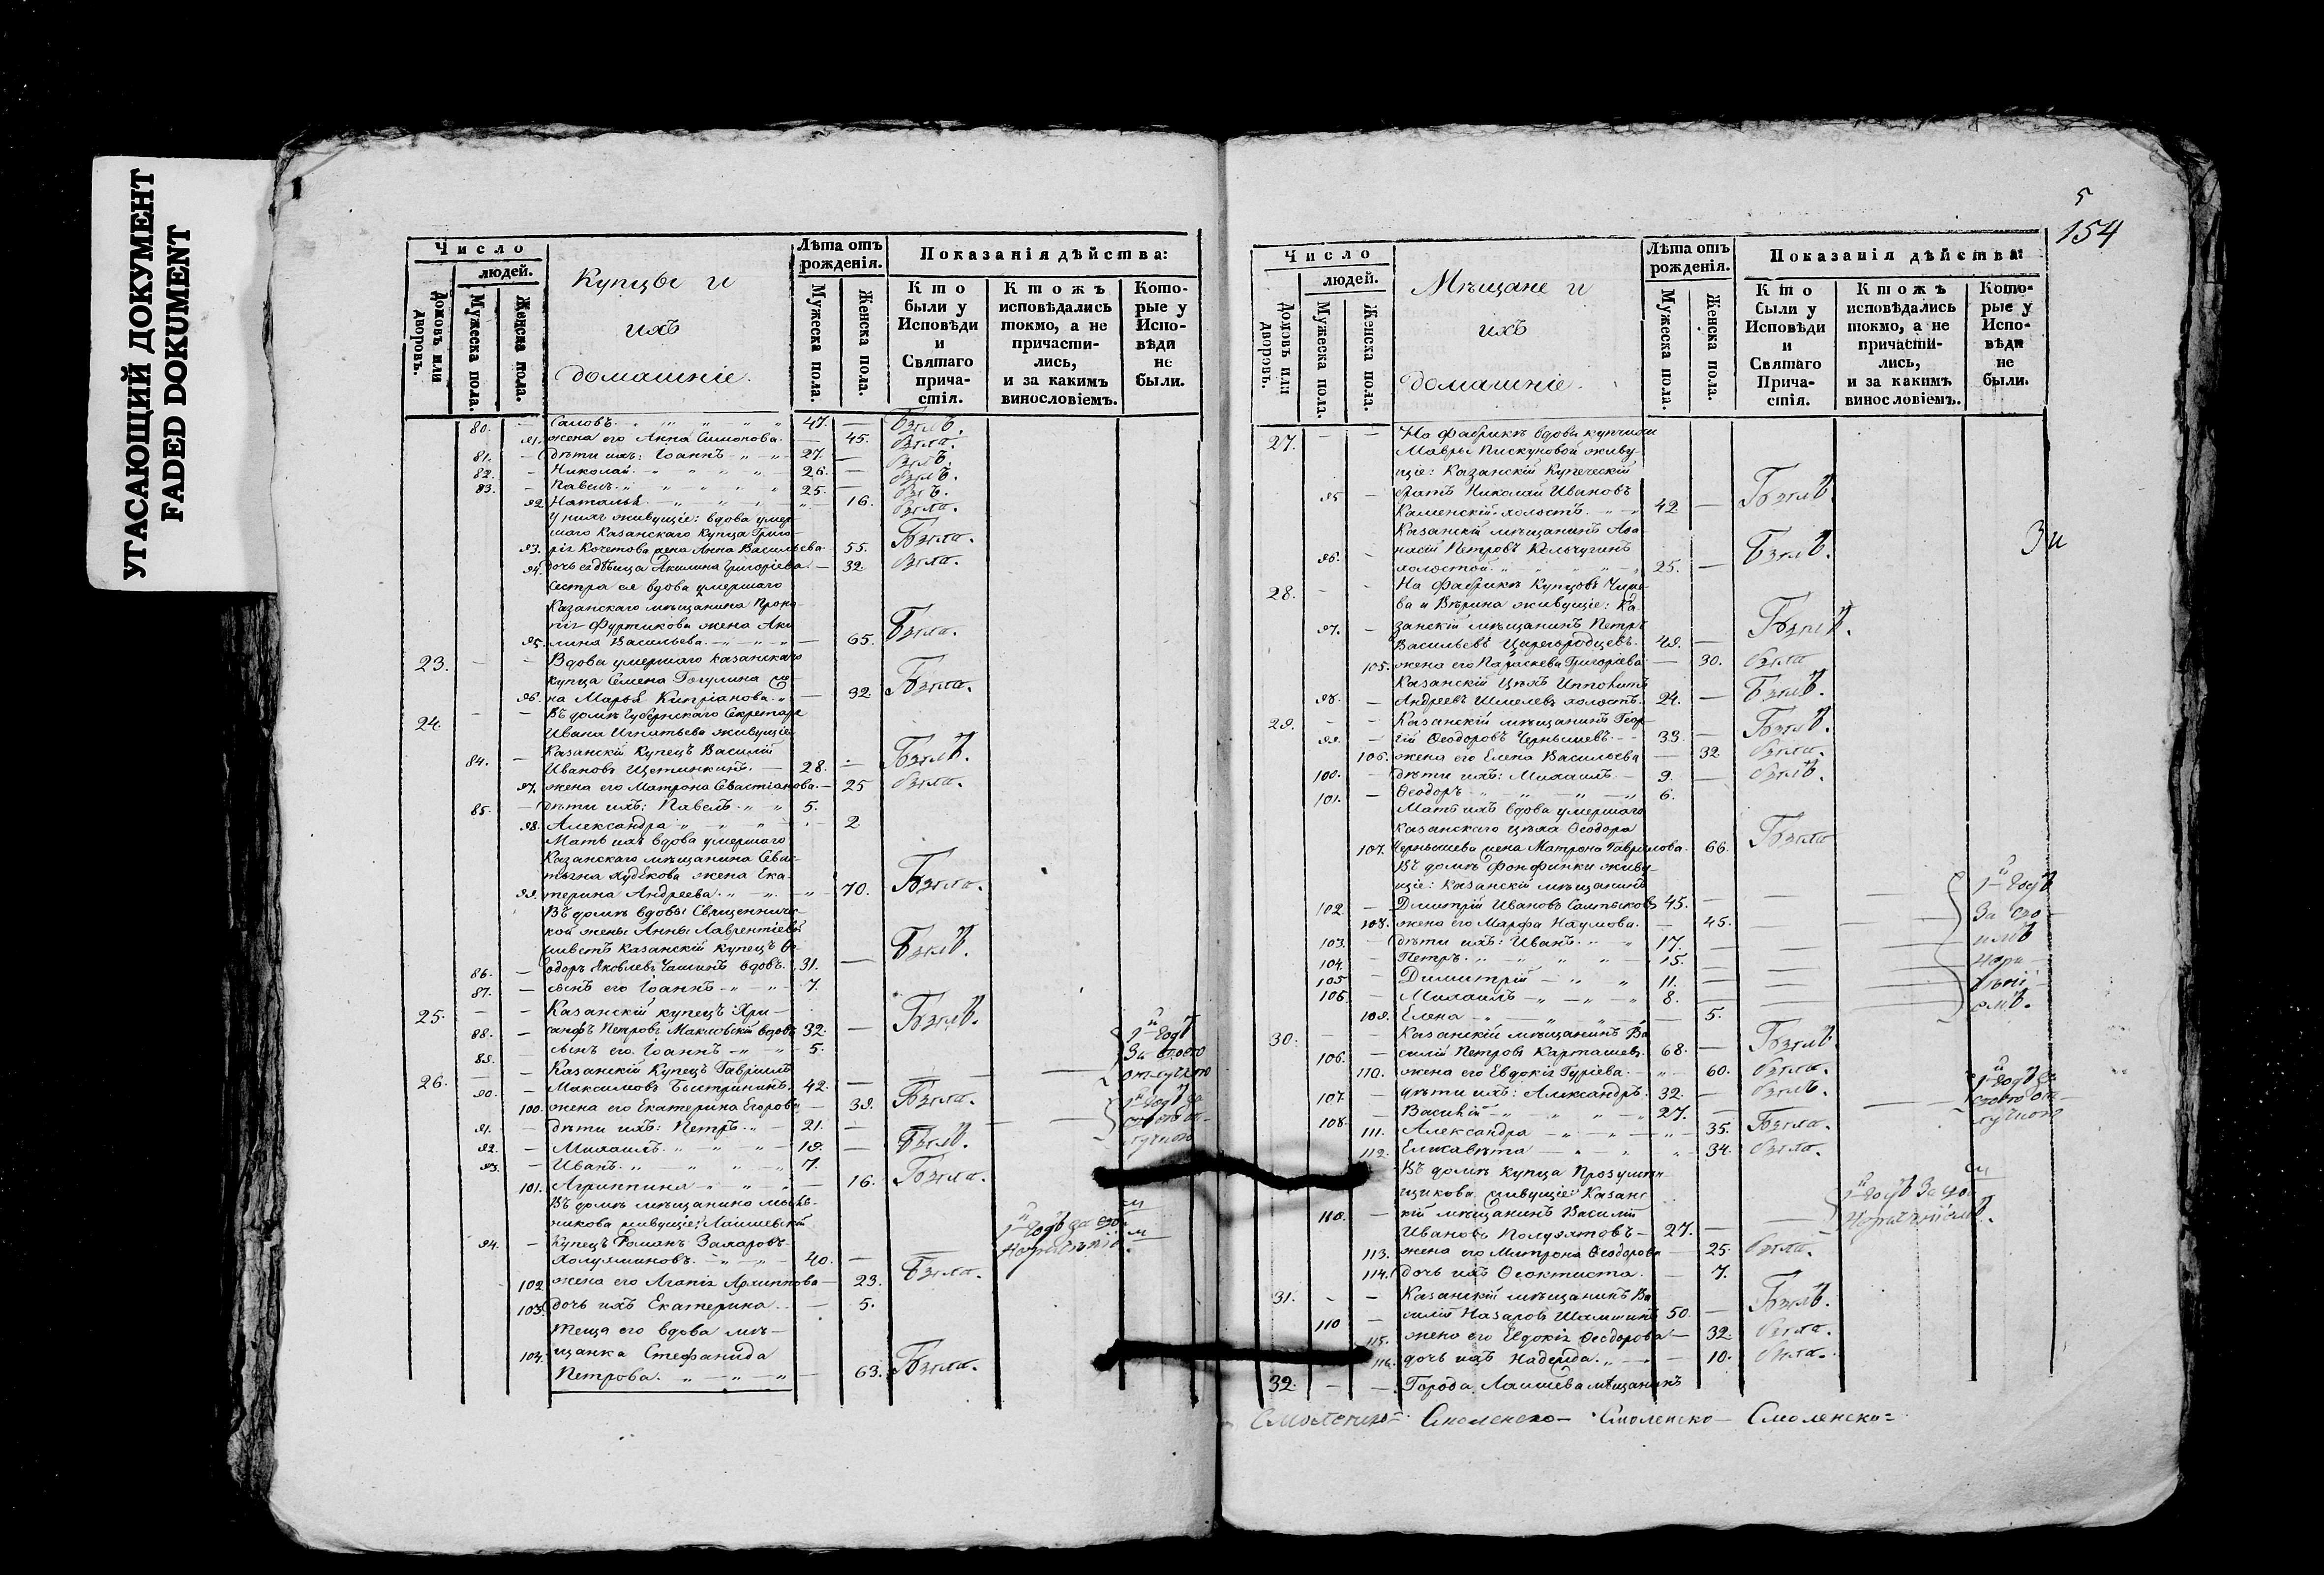 УТАСАЮЩИЙ ДОКУМЕНТ
FADED DOKUMENT
Число
людей.
Домовъ или дворовъ.
Мужеска пола.
Женска пола.
Купцы и
ихъ
домашніе.
Лѣта отъ рожденія.
Мужеска пола.
Женска пола.
Показанія дѣйства:
Кто были у Исповѣди и Святаго прича-стія.
Ктожъ исповѣдались токмо, а не причасти-лись, и за какимъ винословіемъ.
Кото-рые у Испо-вѣди не были.
80. — 47. — Былъ.
91. жена его Анна Симонова. — 45. была.
81. — дѣти ихъ: Іоаннъ 27. — былъ.
82. — Николай. 26. — былъ.
83. — Павелъ. 25. — былъ.
92. Наталья 16. была.
У нихъ живущіе: вдова умер-
шаго Казанскаго Купца Григо-
93. рія Кочетова жена Анна Васильева 55. Была.
94. дочь ея дѣвица Акилина Григоріева — 32. была.
Сестра ея вдова умершаго
Казанскаго мѣщанина Проко-
пія Фуртикова жена Аки
95. лина Васильева. — 65. Была.
23. — — Вдова умершаго Казанскаго
купца Семена Гогулина же-
96. на Марья Кипріанова. — 32 Была.
24. — — Въ домѣ Губернскаго Секретаря
Ивана Игнатьева живущіе
Казанскій Купецъ Василій
84. — Ивановъ Щетинкинъ. 28. — Былъ.
97. жена его Матрона Севастіанова. — 25 была.
85. — дѣти ихъ: Павелъ. 5.
98. Александра 2.
Мать ихъ вдова умершаго
Казанскаго мѣщанина Сева-
тьяна Худякова жена Ека-
99. терина Андреева. 70. Была.
Въ домѣ вдовы Священничес-
кой жены Анны Лаврентіевой
живетъ Казанскій купецъ Ѳе-
86. — одоръ Яковлевъ Чашинъ вдовъ. 31. — Былъ.
87. — сынъ его Іоаннъ 7.
25. — — Казанскій купецъ Хри-
88. — санфъ Петровъ Макловскій вдовъ 32. — Былъ.
89. — сынъ его Іоаннъ 5.
26. — — Казанскій Купецъ Гавріилъ
90. — Максимовъ Быстринкинъ. 42. — 1й годъ За его отлучкою
100. жена его Екатерина Егорова — 39. Была.
91. — дѣти ихъ: Петръ. 21. — 1й годъ за его от-лучкою
92. — Михаилъ. 19. — Былъ.
93. — Иванъ. 7.
101. Агриппина 16. Была.
Въ домѣ мѣщанина
никова живущіе: Лаишевскій
94. — Купецъ Романъ Захаровъ
40. — 1й годъ за его
102 жена его Агапія Архиппова — 23. Была.
103. дочь ихъ Екатерина 5.
Теща его вдова мѣ-
104. щанка Стефанида
Петрова. 63. Была.
5
154
Число
людей.
Домовъ или дворовъ.
Мужеска пола.
Женска пола.
Мѣщане и
ихъ
домашніе.
Лѣта отъ рожденія.
Мужеска пола.
Женска пола.
Показанія дѣйства:
Кто были у Исповѣди и Святаго Прича-стія.
Ктожъ исповѣдались токмо, а не причасти-лись, и за какимъ винословіемъ.
Кото-рые у Испо-вѣди не были.
27. — — На фабрикѣ вдовы купчихи
Мавры Пискуновой живу-
щіе: Казанскій Купеческій
95 — братъ Николай Ивановъ
Каменскій холостъ. 42. — Былъ.
Казанскій мѣщанинъ Аѳа-
насій Петровъ Кольчугинъ
96. — холостой 25. — Былъ.
28. — — На фабрикѣ Купцовъ
ва и Вѣрина живущіе: Ка-
97. — занскій мѣщанинъ Петръ
Васильевъ Царегородцевъ. 49. — Былъ.
105. жена его Параскева Григоріева — 30. была
Казанскій Цѣхъ Ипполитъ
98. — Андреевъ Шмелевъ холостъ. 24. — Былъ.
29. — — Казанскій мѣщанинъ Геор-
99. — гій Ѳеодоровъ Чернышевъ. 33. — Былъ.
106. жена его Елена Васильева — 32 была.
100. — дѣти ихъ: Михаилъ. 9. — былъ.
101. — Ѳеодоръ 6.
Мать ихъ вдова умершаго
Казанскаго цѣха Ѳеодора
107. Чернышева жена Матрона Гаврилова. 66. Была
Въ домѣ Фонфинки живу-
щіе: Казанскій мѣщанинъ
102. — Дмитрій Ивановъ Салтыковъ 45. — 1й годъ
108. жена его Марфа Наумова. — 45. За его
103. — дѣти ихъ: Иванъ. 17.
104. — Петръ. 15.
105 — Димитрій 11.
106. — Михаилъ 8.
109. Елена 5.
30. — — Казанскій мѣщанинъ Ва
106. — силій Петровъ Карташевъ. 68. — Былъ.
110. жена его Евдокія Гуріева. 60. была.
107 — дѣти ихъ: Александръ. 32. — былъ.
108. — Василій 27. — 1й годъ за его от-лучкою
111. Александра 35. Была.
112. Елисавѣта 34. была.
Въ домѣ Купца
щикова живущіе: Казанс
110. — кій мѣщанинъ Василій
Ивановъ Полуехтовъ 27. — 1й годъ За его
113. жена его Матрона Ѳеодорова — 25. была.
114. дочь ихъ Ѳеоктиста. — 7.
31. — — Казанскій мѣщанинъ Ва
110 — силій Назаровъ Шашинъ 50. — Былъ.
115. жена его Евдокія Ѳеодорова — 32. была.
116. дочь ихъ Надежда. — 10. была.
32. — — Города Лаишева мѣщанинъ
Смоленско= Смоленско— Смоленско— Смоленско=